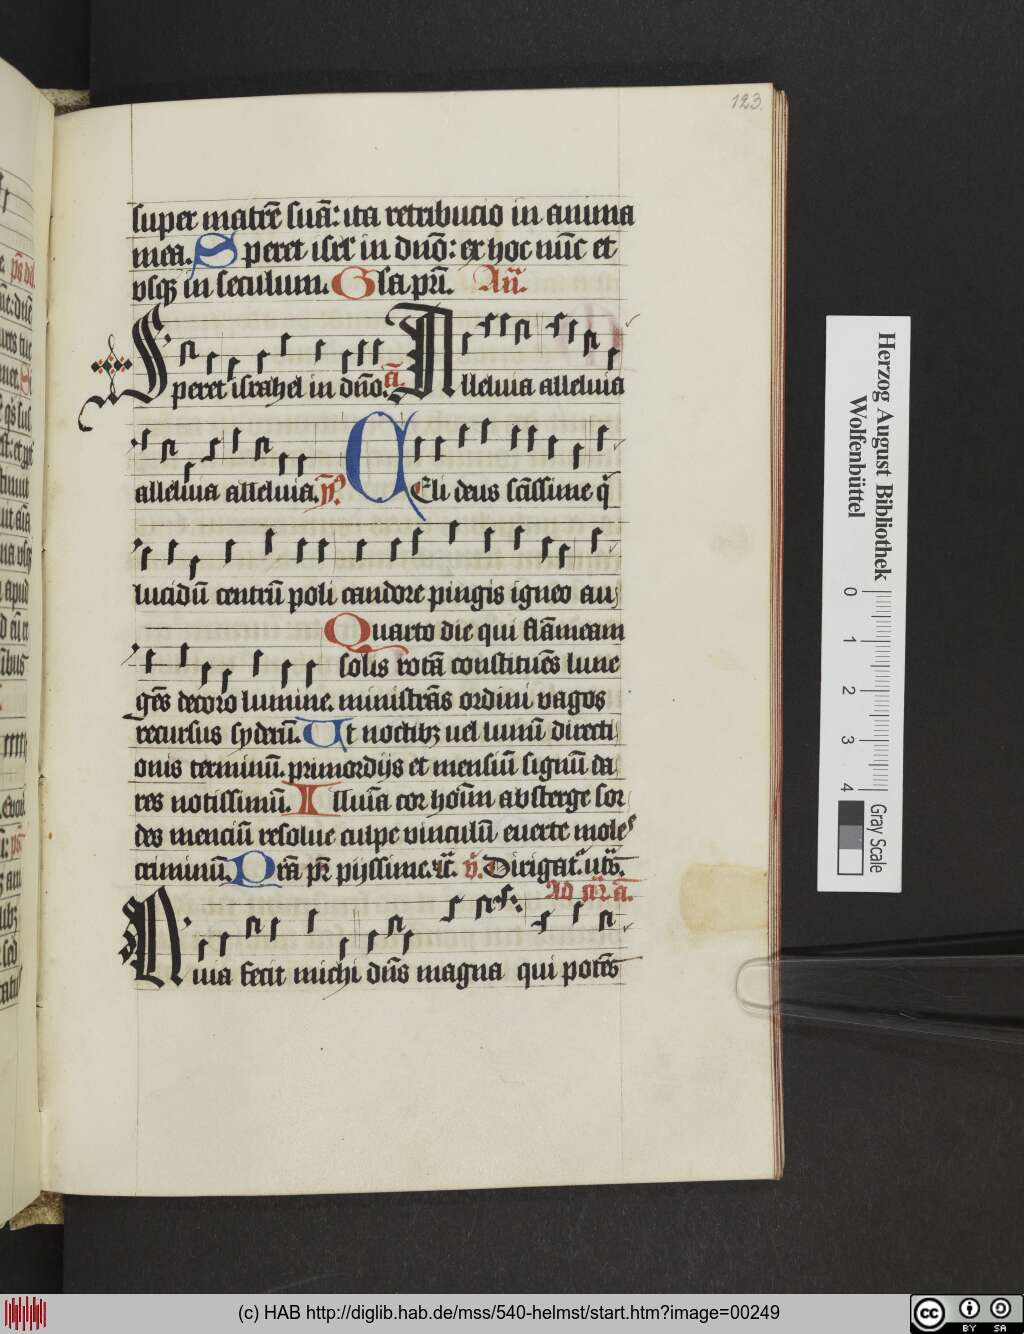 123.
super matrē suā: ita retribucio in anima
mea. Speret isrl' in dnō: ex hoc nūc et
vsq; in seculum. Gl'a pr̄i. Añ.
Speret israhel in dn̄o. a̅ Alleluia alleluia
alleluia alleluia. yp̄. Celi deus sc̄issime q'
lucidū centrū poli candore pingis igneo au
Quarto die qui flāmeam
solis rotā constituēs lune
gēs decoro lumine. ministrās ordini vagos
recursus syderū. Ut noctibz uel lumī directi
onis terminū. primordijs et mensiū signū da
res notissimū. Illuīa cor hoīm absterge sor
des menciū resolue culpe vinculū euerte moles
criminū. Prā pr̄ pijssime. ⁊c̄. v̄. Dirigat'. ut s̄.
Ad m̄r. a̅.
Quia fecit michi dn̄s magna qui potēs
Herzog August Bibliothek
Wolfenbüttel
0 1 2 3 4
Gray Scale
(c) HAB http://diglib.hab.de/mss/540-helmst/start.htm?image=00249
cc BY SA